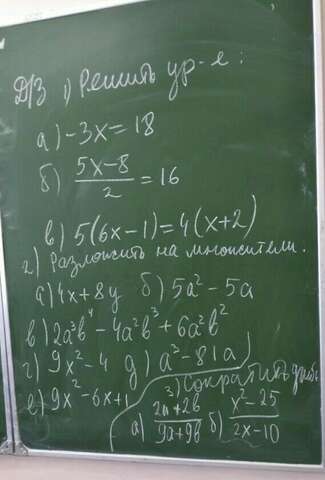 Д/З 1) Решить ур-е:
а) -3x = 18
б) (5x-8)/2 = 16
в) 5(6x-1) = 4(x+2)
2) Разложить на множители.
а) 4x+8y б) 5a² - 5a
в) 2a²b⁴ - 4a²b³ + 6a²b²
г) 9x² - 4 д) a³ - 81a
е) 9x² - 6x + 1
3) Сократить дробь
а) (2a+2b)/(9a+9b) б) (x²-25)/(2x-10)